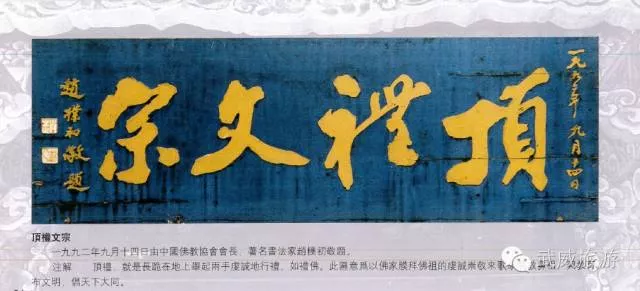 一九九二年九月十四日
頂禮文宗
趙樸初敬題
頂禮文宗
一九九二年九月十四日由中國佛教協會會長、著名書法家趙樸初敬題。
注解 頂禮，就是長跪在地上舉起兩手虔誠地行禮，如禮佛。此匾意爲以佛家膜拜佛祖的虔誠崇敬來歌
布文明，倡天下大同。
武威旅游